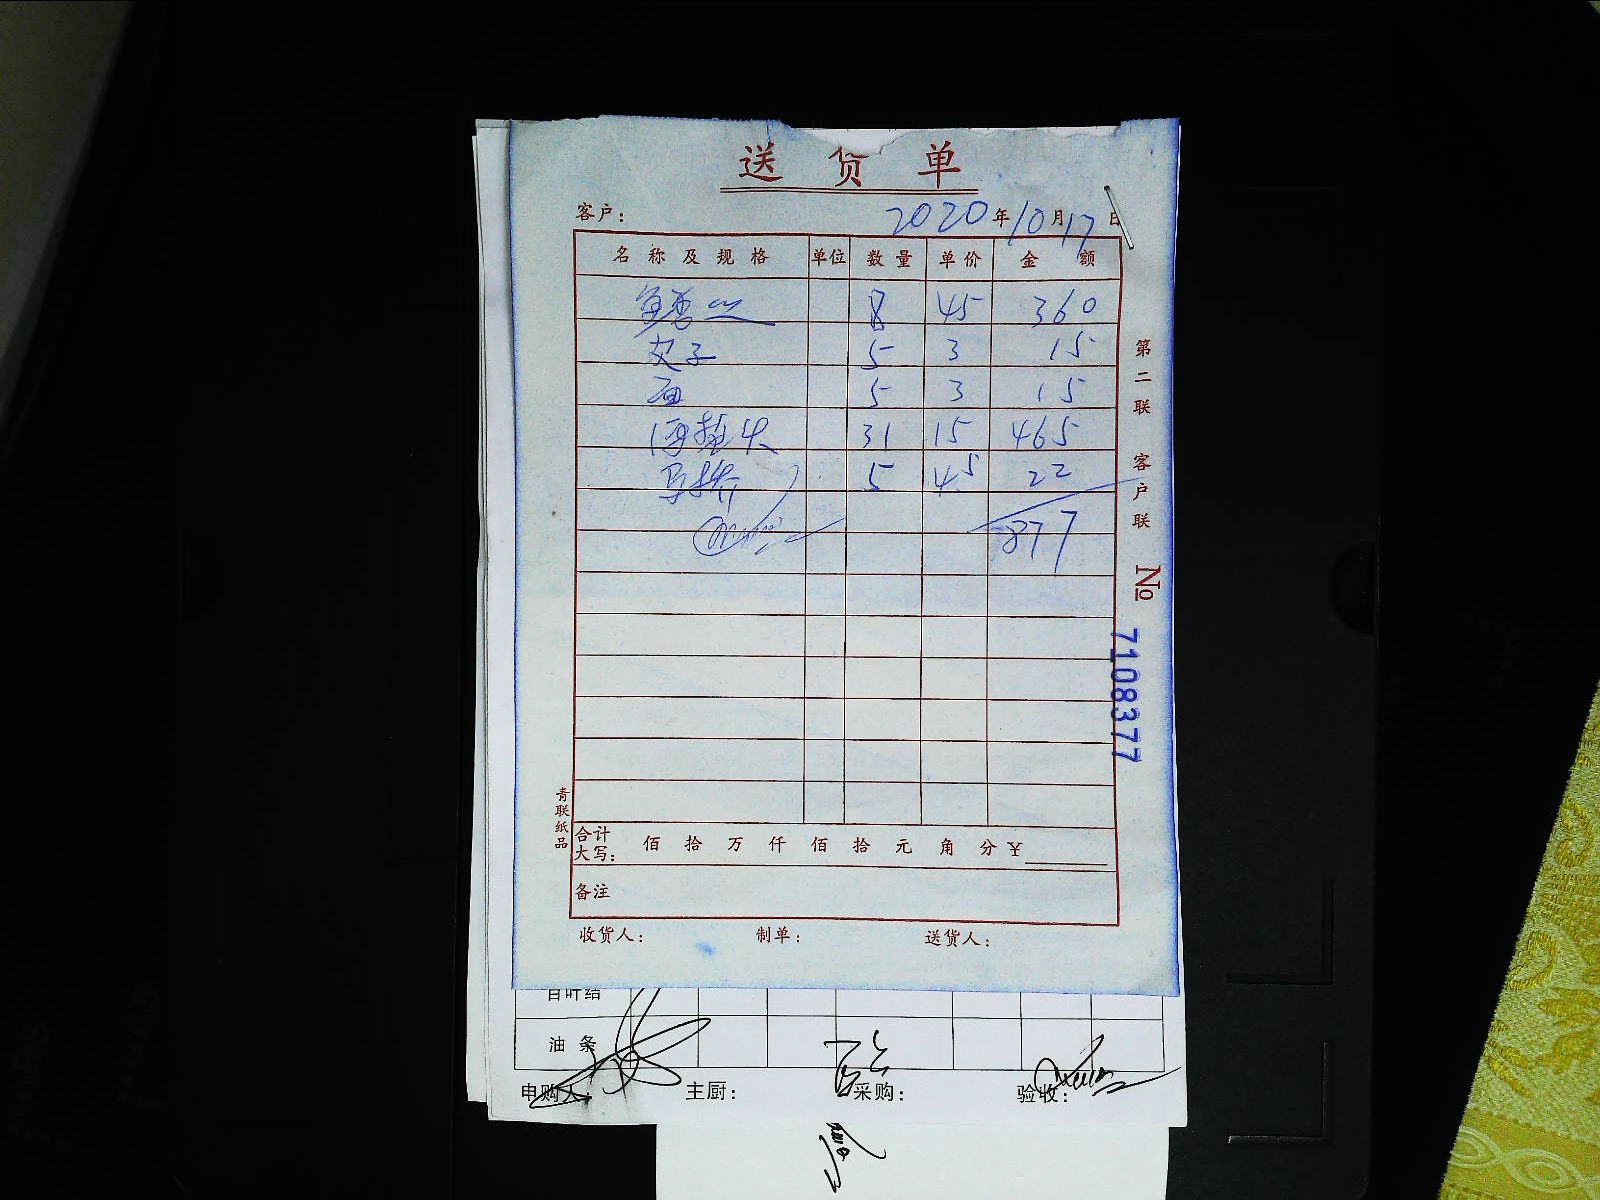 送货单
客户： 2020年10月17日
名称及规格 单位 数量 单价 金额
8 45 360
皮子 5 3 15
面 5 3 15
31 15 465
5 4.5 22
877
合计大写： 佰 拾 万 仟 佰 拾 元 角 分 ¥
备注
收货人： 制单： 送货人：
第二联 客户联 № 7108377
青联纸品
百叶结
油条
申购人： 主厨： 采购： 验收：